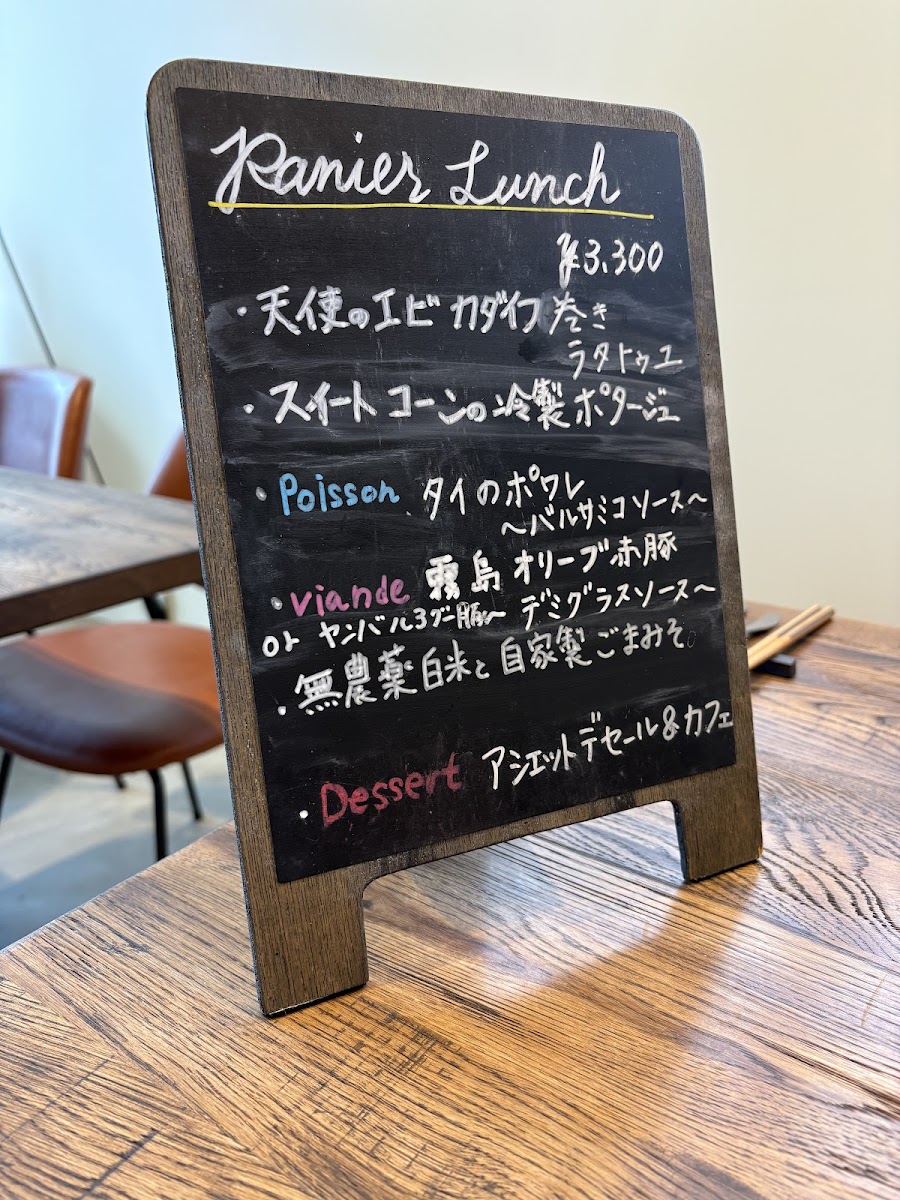 Panier Lunch
¥3,300
・天使のエビ カダイフ巻き
ラタトゥユ
・スイートコーンの冷製ポタージュ
・Poisson タイのポワレ
～バルサミコソース～
・Viande 霧島オリーブ赤豚
or ヤンバル3グー豚～ デミグラスソース～
・無農薬白米と自家製ごまみそ。
・Dessert アシェットデセール&カフェ